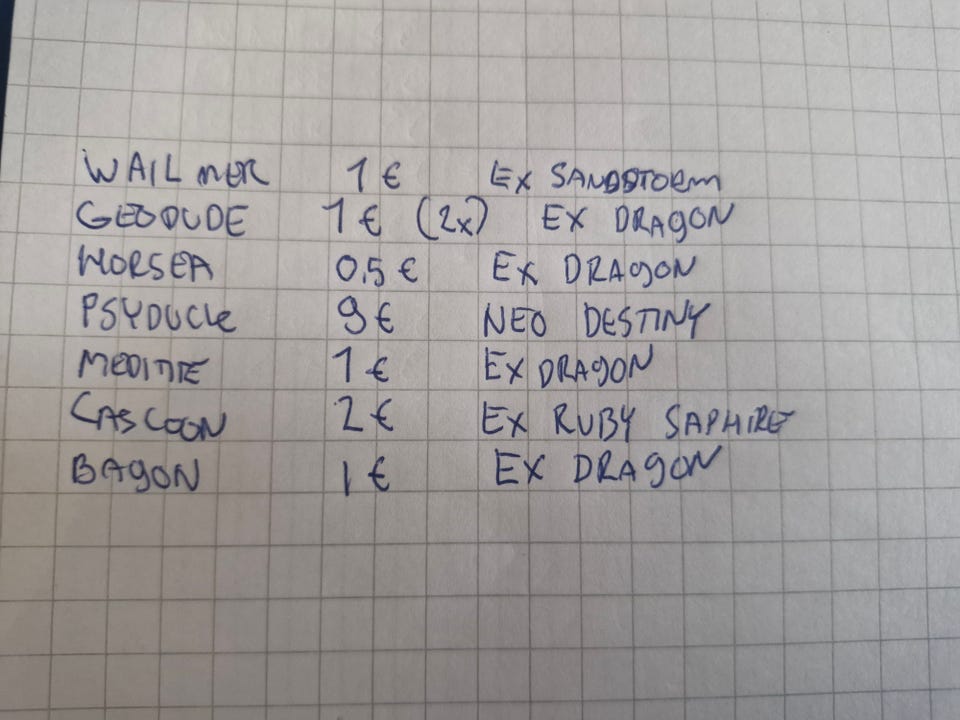 WAILMER 1€ EX SANDSTORM
GEODUDE 1€ (2x) EX DRAGON
HORSEA 0,5€ EX DRAGON
PSYDUCK 9€ NEO DESTINY
MEDITITE 1€ EX DRAGON
CASCOON 2€ EX RUBY SAPHIRE
BAGON 1€ EX DRAGON